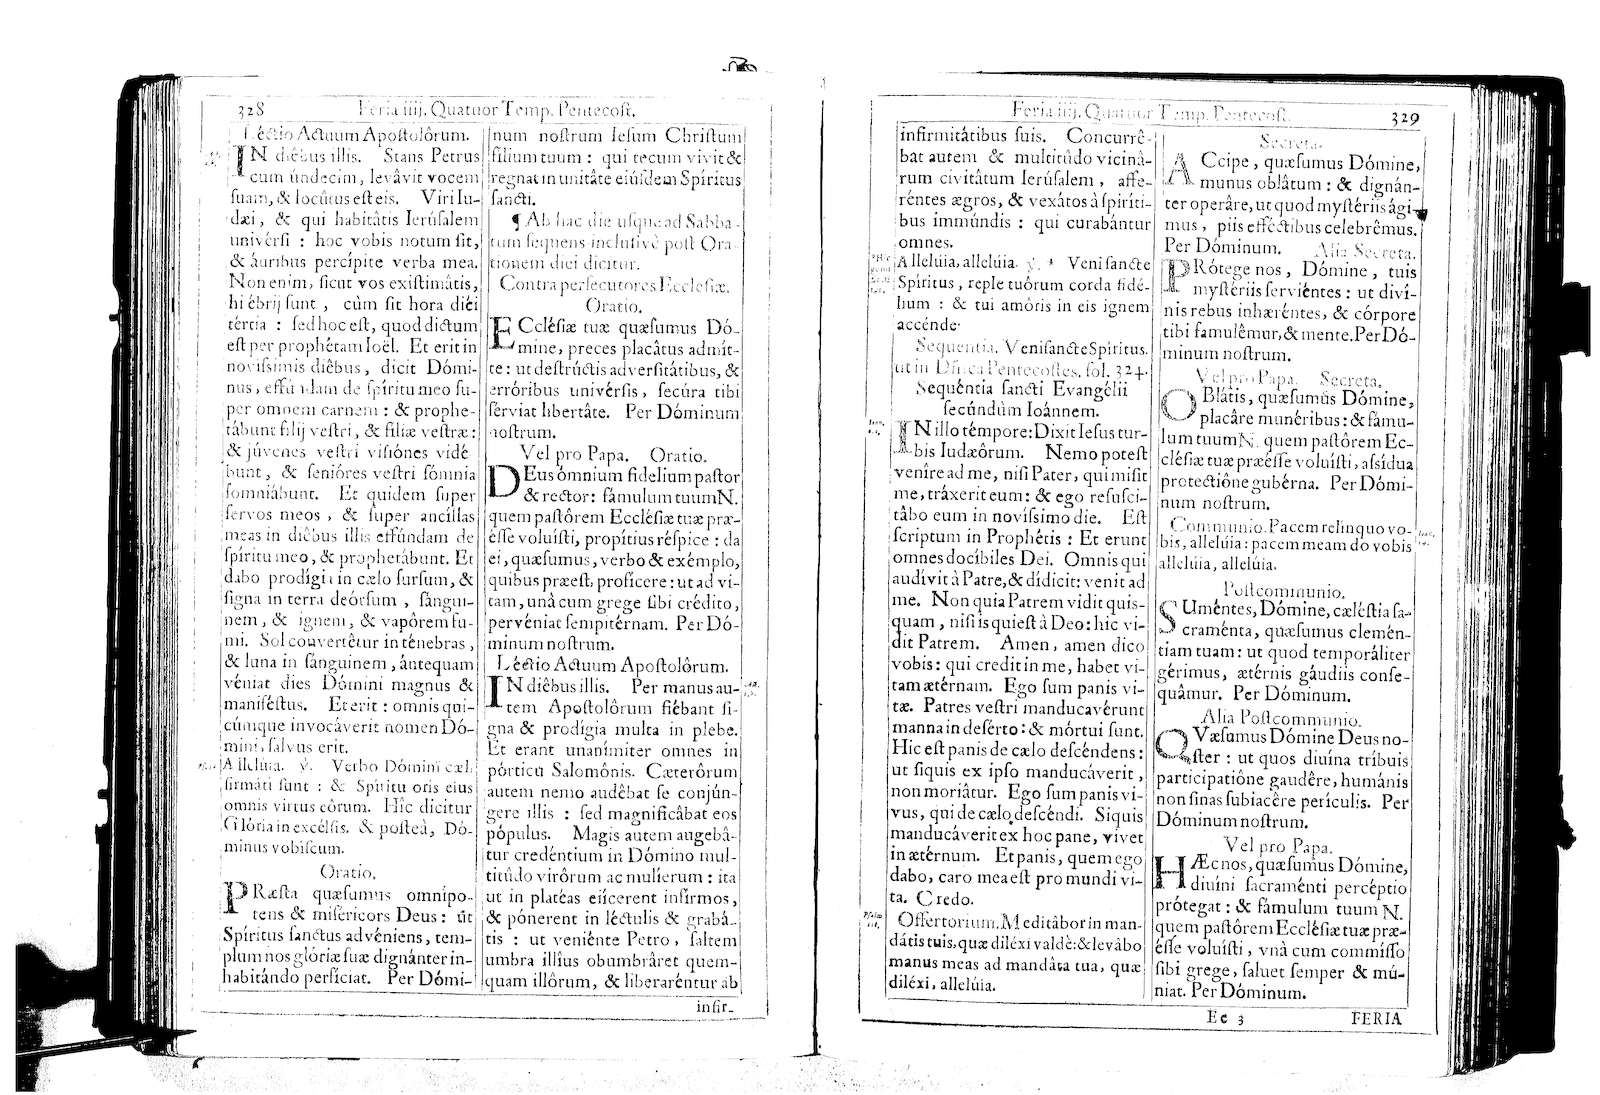 328 Feria iiij. Quatuor Temp. Pentecoſt.
Léctio Actuum Apoſtolôrum.
IN diêbus illis. Stans Petrus
cum úndecim, levâvit vocem
ſuam, & locútus eſt eis. Viri Iu-
dæi, & qui habitâtis Ierúſalem
univérſi : hoc vobis notum ſit,
& áuribus percípite verba mea.
Non enim, ſicut vos exiſtimâtis,
hi ébrij ſunt, cùm ſit hora diéi
tértia : ſed hoc eſt, quod dictum
eſt per prophétam Ioël. Et erit in
novíſsimis diêbus, dicit Dómi-
nus, effúndam de ſpíritu meo ſu-
per omnem carnem : & prophe-
tâbunt filij veſtri, & filiæ veſtræ :
& júvenes veſtri viſiónes vidé-
bunt, & ſenióres veſtri ſómnia
ſomniâbunt. Et quidem ſuper
ſervos meos, & ſuper ancíllas
meas in diêbus illis effúndam de
ſpíritu meo, & prophetâbunt. Et
dabo prodígia in cælo ſurſum, &
ſigna in terra deórſum, ſángui-
nem, & ignem, & vapôrem fu-
mi. Sol convertêtur in ténebras,
& luna in ſánguinem, ántequam
véniat dies Dómini magnus &
maniféſtus. Et erit : omnis qui-
cúmque invocáverit nomen Dó-
mini, ſalvus erit.
Allelúia. ℣. Verbo Dómini cæli
firmáti ſunt : & Spíritu oris eius
omnis virtus eôrum. Hîc dicitur
Glória in excélſis. & poſteà, Dó-
minus vobíſcum.
Oratio.
PRæſta quæſumus omnípo-
tens & miſéricors Deus : út
Spíritus ſanctus advéniens, tem-
plum nos glóriæ ſuæ dignánter in-
habitándo perfíciat. Per Dómi-
num noſtrum Ieſum Chriſtum
fílium tuum : qui tecum vivit &
regnat in unitâte eiúſdem Spíritus
ſancti.
¶ Ab hac die uſque ad Sabba-
tum ſequens incluſivè poſt Ora-
tionem diei dicitur.
Contra perſecutores Eccleſiæ.
Oratio.
ECcléſiæ tuæ quæſumus Dó-
mine, preces placâtus admít-
te : ut deſtrúctis adverſitátibus, &
erróribus univérſis, ſecúra tibi
ſérviat libertâte. Per Dóminum
noſtrum.
Vel pro Papa. Oratio.
DEus ómnium fidelium paſtor
& rector : fámulum tuum N.
quem paſtôrem Eccléſiæ tuæ præ-
éſſe voluíſti, propítius réſpice : da
ei, quæſumus, verbo & exémplo,
quibus præeſt, profícere : ut ad vi-
tam, unà cum grege ſibi crédito,
pervéniat ſempitérnam. Per Dó-
minum noſtrum.
Léctio Actuum Apoſtolôrum.
IN diêbus illis. Per manus au-
tem Apoſtolôrum fiébant ſi-
gna & prodígia multa in plebe.
Et erant unanímiter omnes in
pórticu Salomónis. Cæterôrum
autem nemo audêbat ſe conjún-
gere illis : ſed magnificâbat eos
pópulus. Magis autem augebâ-
tur credéntium in Dómino mul-
titúdo virôrum ac mulíerum : ita
ut in platéas eiícerent infirmos,
& pónerent in léctulis & grabâ-
tis : ut veniénte Petro, ſaltem
umbra illíus obumbrâret quem-
quam illôrum, & liberaréntur ab
infir-
Feria iiij. Quatuor Temp. Pentecoſt. 329
infirmitâtibus ſuis. Concurrê-
bat autem & multitúdo vicinâ-
rum civitâtum Ierúſalem, affe-
réntes ægros, & vexátos à ſpiríti-
bus immúndis : qui curabántur
omnes.
Allelúia, allelúia. ℣. Veni ſancte
Spíritus, reple tuórum corda fidé-
lium : & tui amóris in eis ignem
accénde.
Sequentia. Veni ſancte Spíritus.
ut in Dñica Pentecoſtes. fol. 324.
Sequéntia ſancti Evangélii
ſecúndùm Ioánnem.
IN illo témpore: Dixit Ieſus tur-
bis Iudæôrum. Nemo poteſt
veníre ad me, niſi Pater, qui miſit
me, tráxerit eum : & ego reſuſci-
tâbo eum in novíſsimo die. Eſt
ſcriptum in Prophétis : Et erunt
omnes docíbiles Dei. Omnis qui
audívit à Patre, & dídicit: venit ad
me. Non quia Patrem vidit quis-
quam, niſi is qui eſt à Deo : hic vi-
dit Patrem. Amen, amen dico
vobis : qui credit in me, habet vi-
tam ætérnam. Ego ſum panis vi-
tæ. Patres veſtri manducavérunt
manna in deſérto : & mórtui ſunt.
Hic eſt panis de cælo deſcéndens :
ut ſiquis ex ipſo manducáverit,
non moriâtur. Ego ſum panis vi-
vus, qui de cælo deſcéndi. Siquis
manducáverit ex hoc pane, vivet
in ætérnum. Et panis, quem ego
dabo, caro mea eſt pro mundi vi-
ta. Credo.
Offertorium. Meditâbor in man-
dátis tuis, quæ diléxi valdè: & levâbo
manus meas ad mandâta tua, quæ
diléxi, allelúia.
Secreta.
ACcipe, quæſumus Dómine,
munus oblâtum : & dignán-
ter operâre, ut quod myſtériis ági-
mus, piis efféctibus celebrêmus.
Per Dóminum. Alia Secreta.
PRótege nos, Dómine, tuis
myſtériis ſerviéntes : ut diví-
nis rebus inhæréntes, & córpore
tibi famulêmur, & mente. Per Dó-
minum noſtrum.
Vel pro Papa. Secreta.
OBlâtis, quæſumus Dómine,
placâre munéribus : & fámu-
lum tuum N. quem paſtôrem Ec-
cléſiæ tuæ præéſſe voluíſti, aſsídua
protectióne gubérna. Per Dómi-
num noſtrum.
Communio. Pacem relinquo vo-
bis, allelúia : pacem meam do vobis
allelúia, allelúia.
Poſtcommunio.
SUméntes, Dómine, cæléſtia ſa-
craménta, quæſumus clemén-
tiam tuam : ut quod temporáliter
gérimus, ætérnis gáudiis conſe-
quâmur. Per Dóminum.
Alia Poſtcommunio.
QVæſumus Dómine Deus no-
ſter : ut quos diuína tríbuis
participatióne gaudêre, humánis
non ſinas ſubiacêre perículis. Per
Dóminum noſtrum.
Vel pro Papa.
HÆc nos, quæſumus Dómine,
diuíni ſacraménti percéptio
prótegat : & fámulum tuum N.
quem paſtôrem Eccléſiæ tuæ præ-
éſſe voluíſti, vnà cum commíſſo
ſibi grege, ſaluet ſemper & mú-
niat. Per Dóminum.
Ee 3 FERIA